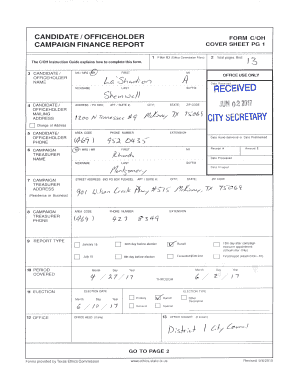 CANDIDATE / OFFICEHOLDER
CAMPAIGN FINANCE REPORT
FORM C/OH
COVER SHEET PG 1
The C/OH Instruction Guide explains how to complete this form.
1 Filer ID (Ethics Commission Filers)
2 Total pages filed:
13
3 CANDIDATE /
OFFICEHOLDER
NAME
MS / MRS / MR
FIRST
MI
La'Shadion
A
NICKNAME
LAST
SUFFIX
Shemwell
OFFICE USE ONLY
Date Received
RECEIVED
JUN 02 2017
CITY SECRETARY
4 CANDIDATE /
OFFICEHOLDER
MAILING
ADDRESS
Change of Address
ADDRESS / PO BOX;
APT / SUITE #;
CITY;
STATE;
ZIP CODE
1200 N Tennessee
McKinney, TX 75069
5 CANDIDATE/
OFFICEHOLDER
PHONE
AREA CODE
PHONE NUMBER
EXTENSION
952 0435
Date Hand-delivered or Date Postmarked
Receipt #
Amount $
Date Processed
Date Imaged
6 CAMPAIGN
TREASURER
NAME
MS / MRS / MR
FIRST
MI
NICKNAME
LAST
SUFFIX
Montgomery
7 CAMPAIGN
TREASURER
ADDRESS
(Residence or Business)
STREET ADDRESS (NO PO BOX PLEASE);
APT / SUITE #;
CITY;
STATE;
ZIP CODE
901 Wilson Creek Pkwy #515 McKinney, TX 75069
8 CAMPAIGN
TREASURER
PHONE
AREA CODE
PHONE NUMBER
EXTENSION
427 8349
9 REPORT TYPE
January 15
30th day before election
Runoff
15th day after campaign
treasurer appointment
(Officeholder Only)
July 15
8th day before election
Exceeded $500 limit
Final Report (Attach C/OH - FR)
10 PERIOD
COVERED
Month
Day
Year
4 / 27 / 17
THROUGH
Month
Day
Year
6 / 2 / 17
11 ELECTION
ELECTION DATE
Month
Day
Year
6 / 10 / 17
ELECTION TYPE
Primary
Runoff
Other
Description
General
Special
12 OFFICE
OFFICE HELD (if any)
13 OFFICE SOUGHT (if known)
District 1 City Council
GO TO PAGE 2
Forms provided by Texas Ethics Commission
www.ethics.state.tx.us